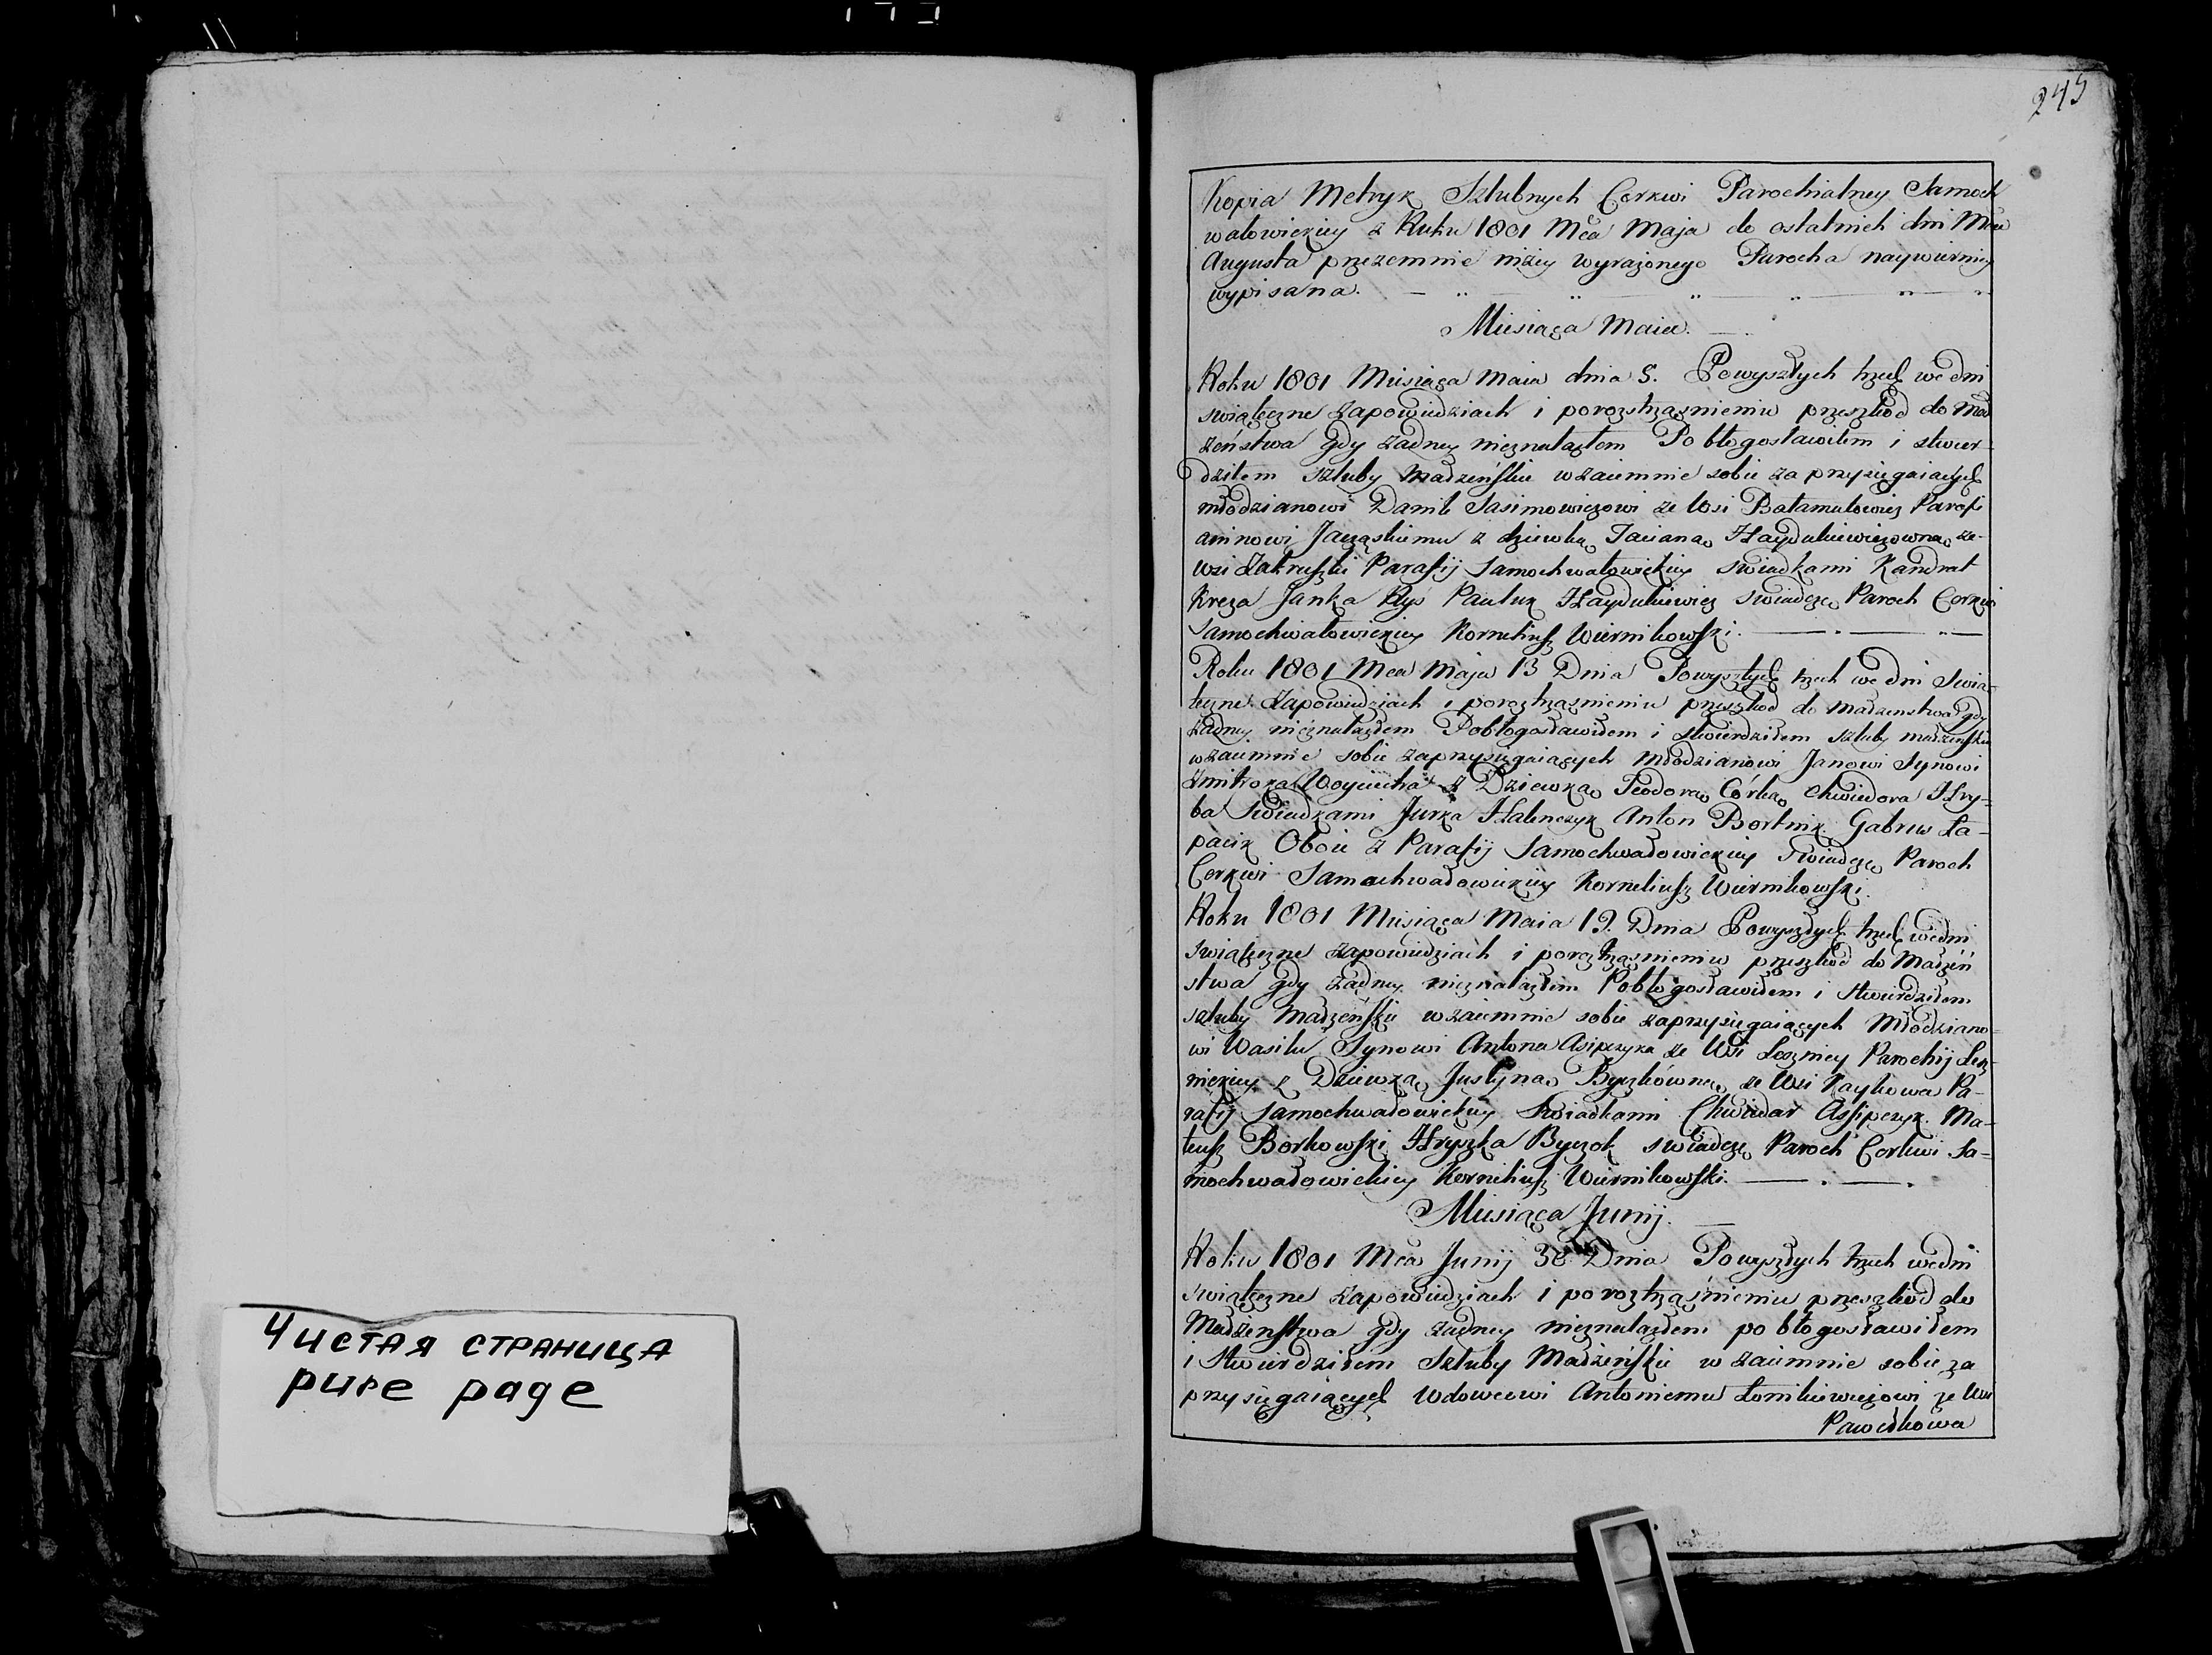 245
Kopia Metryk Szlubnych Cerkwi Parochialney Samoch
wałowickiey z Roku 1801 Mca Maja do ostatnich dni Mca
Augusta przezemnie niżey wyrażonego Parocha naywierniey
wypisana.
Miesiąca Maia.
Roku 1801 Miesiąca Maia dnia 5. Powyszłych trzech we dni
swiąteczne zapowiedziach i porozstrząsnieniu przeszkod do Mał
żeństwa gdy żadney nieznalazłem Pobłogosławiłem i stwier-
dziłem szluby Małżeńskie wzaiemnie sobie zaprzysięgaiących
młodzianowi Danile Sasimowiczowi ze Wsi Bałamutowicz Parafi
aninowi Jacząskiemu z dziewką Tacianą Haydukiewiczowną ze-
wsi Zakruszki Parafij Samochwałowickiey swiadkami Kandrat
Kreza Janka Ryś Pauluk Haydukiewicz swiadczę Paroch Cerkwi
Samochwałowickiey Korneliusz Wiernikowski.
Roku 1801 Mca Maja 13 Dnia Powyszłych trzech we dni Swią-
teczne Zapowiedziach i poroztrząsnieniu przeszkod do małżenstwa gdy
żadney nieznalazłem Pobłogosławiłem i stwierdziłem szluby małżenskie
wzaiemnie sobie zaprzysięgaiących Młodzianowi Janowi Synowi
Dmitroka Woyciecha z Dziewką Teodorą Córką Chwiedora Hry-
ba Swiadkami Jurka Halenczyk Anton Bortnik Gabrus Ła-
pacik Oboie z Parafij Samochwałowickiey Swiadczę Paroch
Cerkwi Samochwałowickiey Korneliusz Wiernikowski.
Roku 1801 Miesiąca Maia 19. Dnia Powyszłych trzech wedni
swiąteczne zapowiedziach i poroztrząsnieniu przeszkod do Małżeń
stwa gdy żadney nieznalazłem Pobłogosławiłem i stwierdziłem
szluby Małżeńskie wzaiemnie sobie zaprzysięgaiących Młodziano-
wi Wasilu Synowi Antona Asipczyka ze Wsi Leszniey Parochij Lesz
nickiey z Dziewką Justyną Byczkówną ze Wsi Raykowa Pa-
rafij Samochwałowickiey Swiadkami Chwiedar Assipczyk Ma-
teusz Borkowski Hryszka Byczok swiadczę Paroch Cerkwi Sa-
mochwałowickiey Korneliusz Wiernikowski.
Miesiąca Junij.
Roku 1801 Mca Junij 30 Dnia Powyszłych trzech wedni
swiąteczne zapowiedziach i poroztrząśnieniu przeszkod do
Małżenstwa gdy żadney nieznalazłem pobłogosławiłem
i Stwierdziłem Szluby Małżeńskie wzaiemnie sobie za
przysięgaiących Wdowcowi Antoniemu Łomikiewiczowi ze Wsi
Pawełkowa
Чистая страница
pure page